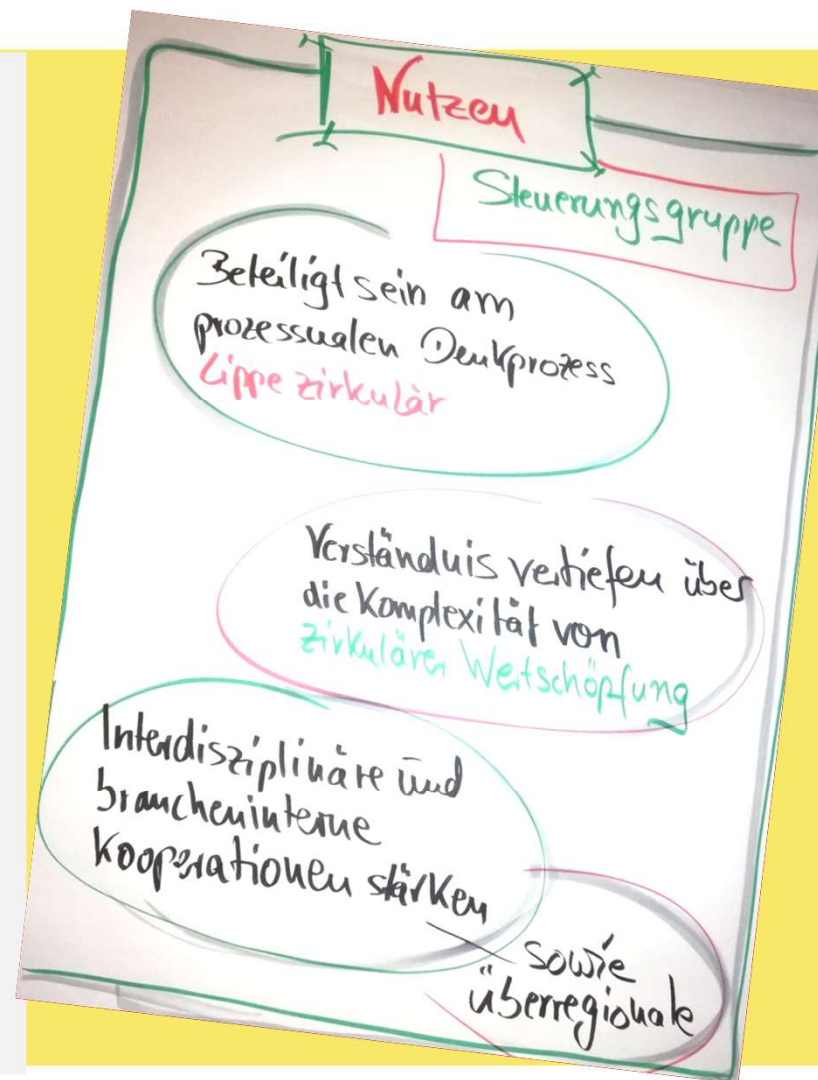 Nutzen
Steuerungsgruppe
Beteiligt sein am
prozessualen Denkprozess
Lippe zirkulär
Verständnis vertiefen über
die Komplexität von
zirkulärer Wertschöpfung
Interdisziplinäre und
brancheninterne
Kooperationen stärken
sowie
überregionale